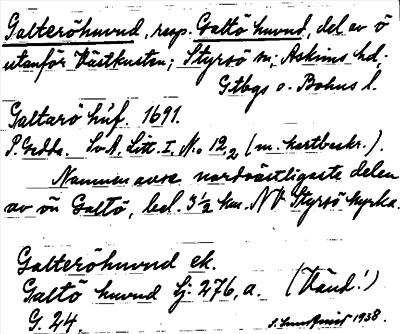 Galteröhuvud, resp. Galtö huvud, del av ö
utanför Västkusten; Styrsö sn; Askims hd.
Gtbgs o. Bohus l.
Galtarö húf. 1691.
P. Gedda. Sv. A. Litt. I. No 19,2 (m. kartbeskr.).
Namnen avse nordvästligaste delen
av ön Galtö, bel. 3 1/2 km. NV Styrsö kyrka.
Galteröhuvud ek.
Galtö huvud Gj. 276, a. (Vänd!)
G. 24. 1938.